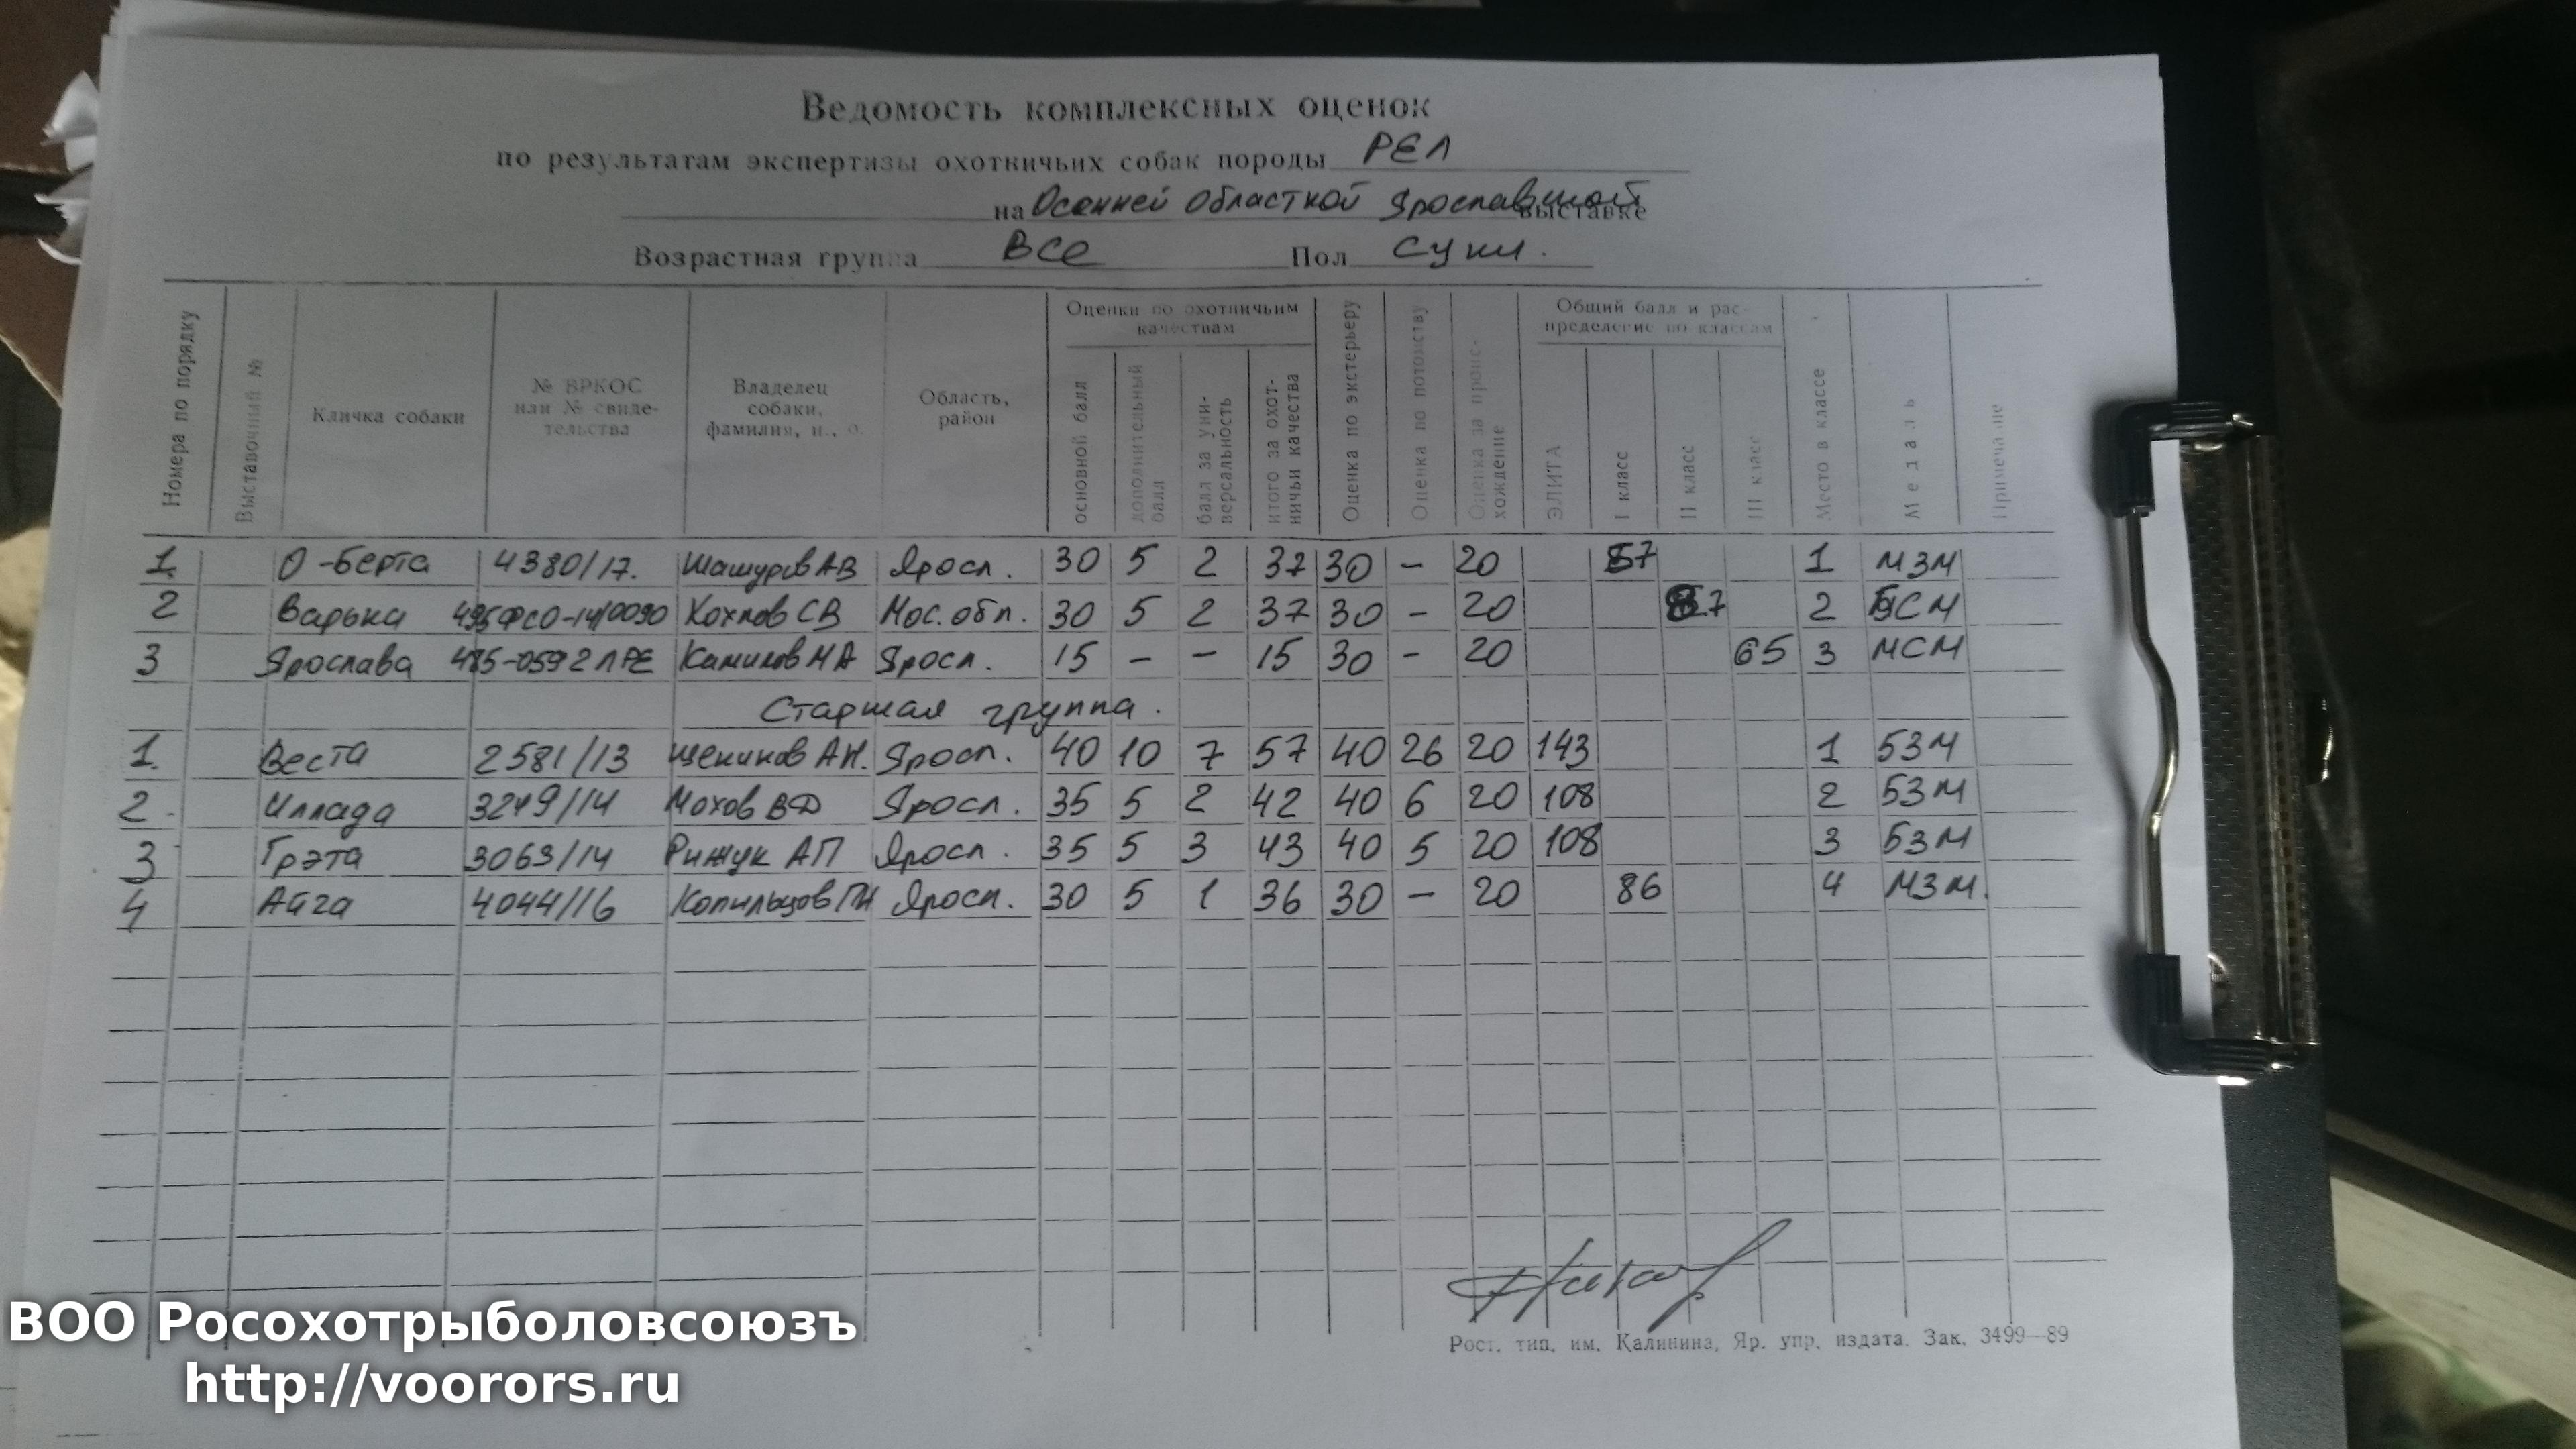 Ведомость комплексных оценок
по результатам экспертизы охотничьих собак породы РЕЛ
на Осенней Областной Ярославской выставке
Возрастная группа Все Пол суки.
Номера по порядку
Выставочный №
Кличка собаки
№ ВРКОС или № свидетельства
Владелец собаки, фамилия, и., о.
Область, район
Оценки по охотничьим качествам
основной балл
дополнительный балл
балл за универсальность
итого за охотничьи качества
Оценка по экстерьеру
Оценка по потомству
Оценка за происхождение
Общий балл и распределение по классам
ЭЛИТА
I класс
II класс
III класс
Место в классе
Медаль
Примечание
1 О-Берта 4380/17. Шашуров АВ Яросл. 30 5 2 37 30 – 20 87 1 МЗМ
2 Варька Хохлов СВ Мос. обл. 30 5 2 37 30 – 20 87 2 БСМ
3 Ярослава Яросл. 15 – – 15 30 – 20 65 3 МСМ
Старшая группа.
1. Веста 2581/13 Щеников АН. Яросл. 40 10 7 57 40 26 20 143 1 БЗМ
2. Иллада 3249/14 Мохов ВФ Яросл. 35 5 2 42 40 6 20 108 2 БЗМ
3 Грэта 3063/14 Рижук АП Яросл. 35 5 3 43 40 5 20 108 3 БЗМ
4 Айга 4044/16 Копильцов ГН Яросл. 30 5 1 36 30 – 20 86 4 МЗМ.
Рост. тип. им. Калинина, Яр. упр. издата. Зак. 3499—89
ВОО Росохотрыболовсоюзъ
http://voorors.ru